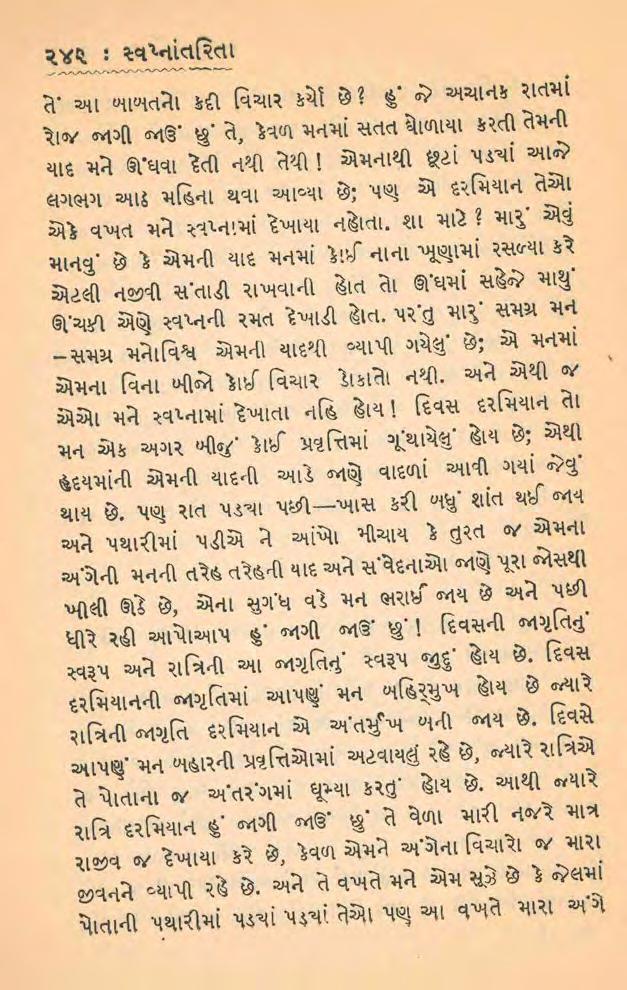 ૨૪૯ : સ્વપ્નાંતરિતા
તેં આ બાબતનો કદી વિચાર કર્યો છે? હું જે અચાનક રાતમાં
રોજ જાગી જાઉં છું તે, કેવળ મનમાં સતત ઘોળાયા કરતી તેમની
યાદ મને ઊંઘવા દેતી નથી તેથી! એમનાથી છૂટાં પડ્યાં આજે
લગભગ આઠ મહિના થવા આવ્યા છે; પણ એ દરમિયાન તેઓ
એકે વખત મને સ્વપ્નામાં દેખાયા નહોતા. શા માટે? મારું એવું
માનવું છે કે એમની યાદ મનમાં કોઈ નાના ખૂણામાં રસળ્યા કરે
એટલી નજીવી સંતાડી રાખવાની હોત તો ઊંઘમાં સહેજે માથું
ઊંચકી એણે સ્વપ્નની રમત દેખાડી હોત. પરંતુ મારું સમગ્ર મન
–સમગ્ર મનોવિશ્વ એમની યાદથી વ્યાપી ગયેલું છે; એ મનમાં
એમના વિના બીજો કોઈ વિચાર ડોકાતો નથી. અને એથી જ
એઓ મને સ્વપ્નામાં દેખાતા નહિ હોય! દિવસ દરમિયાન તો
મન એક અગર બીજું કોઈ પ્રવૃત્તિમાં ગૂંથાયેલું હોય છે; એથી
હૃદયમાંની એમની યાદની આડે જાણે વાદળાં આવી ગયાં જેવું
થાય છે. પણ રાત પડ્યા પછી—ખાસ કરી બધું શાંત થઈ જાય
અને પથારીમાં પડીએ ને આંખો મીચાય કે તુરત જ એમના
અંગેની મનની તરેહ તરેહની યાદ અને સંવેદનાઓ જાણે પૂરા જોસથી
ખીલી ઊઠે છે, એના સુગંધ વડે મન ભરાઈ જાય છે અને પછી
ધીરે રહી આપોઆપ હું જાગી જાઉં છું! દિવસની જાગૃતિનું
સ્વરૂપ અને રાત્રિની આ જાગૃતિનું સ્વરૂપ જુદું હોય છે. દિવસ
દરમિયાનની જાગૃતિમાં આપણું મન બહિર્‌મુખ હોય છે જ્યારે
રાત્રિની જાગૃતિ દરમિયાન એ અંતર્મુખ બની જાય છે. દિવસે
આપણું મન બહારની પ્રવૃત્તિઓમાં અટવાયલું રહે છે, જ્યારે રાત્રિએ
તે પોતાના જ અંતરંગમાં ઘૂમ્યા કરતું હોય છે. આથી જ્યારે
રાત્રિ દરમિયાન હું જાગી જાઉં છું તે વેળા મારી નજરે માત્ર
રાજીવ જ દેખાયા કરે છે, કેવળ એમને અંગેના વિચારો જ મારા
જીવનને વ્યાપી રહે છે. અને તે વખતે મને એમ સૂઝે છે કે જેલમાં
પોતાની પથારીમાં પડ્યાં પડ્યાં તેઓ પણ આ વખતે મારા અંગે